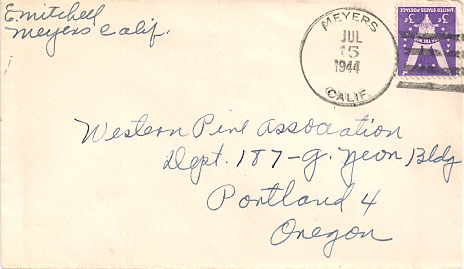 E. Mitchell
Meyers Calif.
MEYERS
JUL
15
1944
CALIF.
UNITED STATES POSTAGE
3¢
3¢
Western Pine Association
Dept. 187-G. Yeon Bldg
Portland 4
Oregon